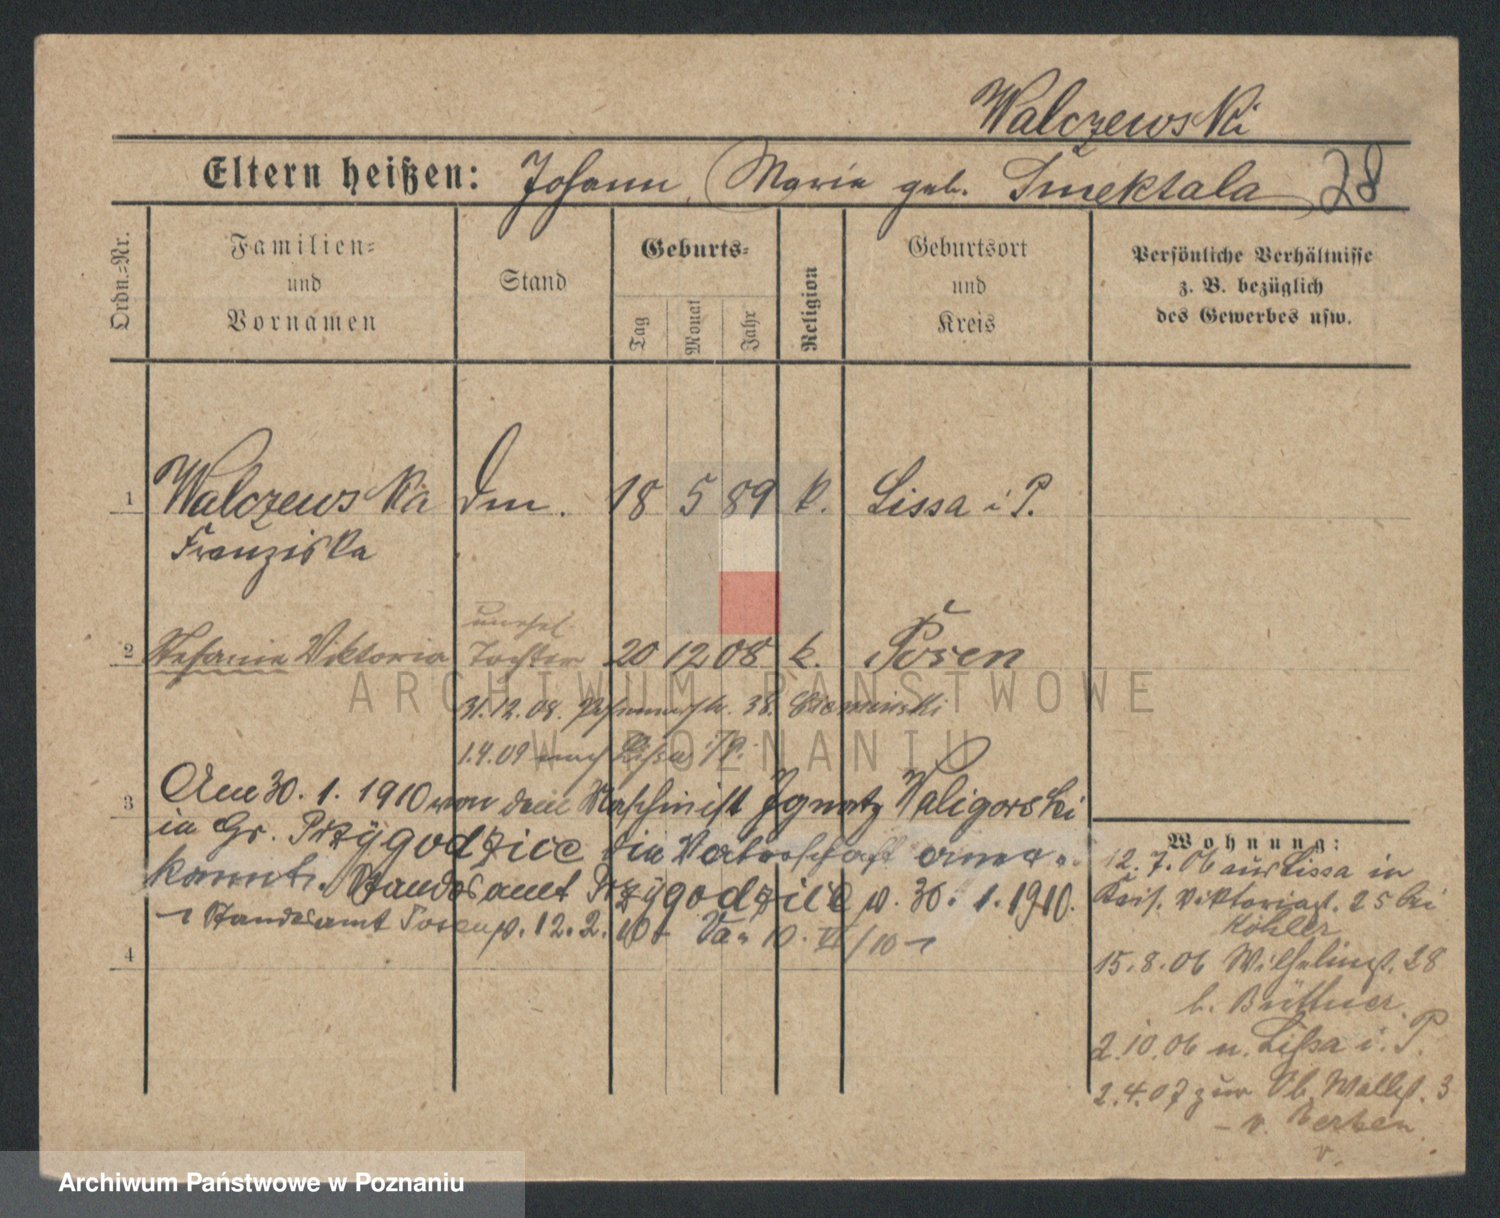 Walczewski
Eltern heißen: Johann, Maria geb. Smektala 28
Ordn.-Nr.
Familien- und Vornamen
Stand
Geburts-
Tag
Monat
Jahr
Religion
Geburtsort und Kreis
Persönliche Verhältnisse z. B. bezüglich des Gewerbes usw.
1 Walczewska 18 5 89 k. Lissa i P.
Franziska
unehel.
2 Stefanie Viktoria Tochter 20 12 08 k. Posen
31.12.08. 38.
1.4.09 nach Lissa i/P.
3 Am 30. 1. 1910 von dem Maschinist Ignatz Waligorski
in Gr. Przygodzice die Vaterschaft aner-
kannt. Standesamt Przygodzice v. 30. 1. 1910.
Standesamt Posen v. 12. 2. 10
4
Wohnung:
12. 7. 06 aus Lissa in
Kais. Viktoriast. 25 bei
Köhler
15. 8. 06 Wilhelmst. 28
b. Büttner
2.10.06 n. Lissa i. P.
2.4.07 zur Ob. Wallst. 3
ARCHIWUM PAŃSTWOWE
W POZNANIU
Archiwum Państwowe w Poznaniu